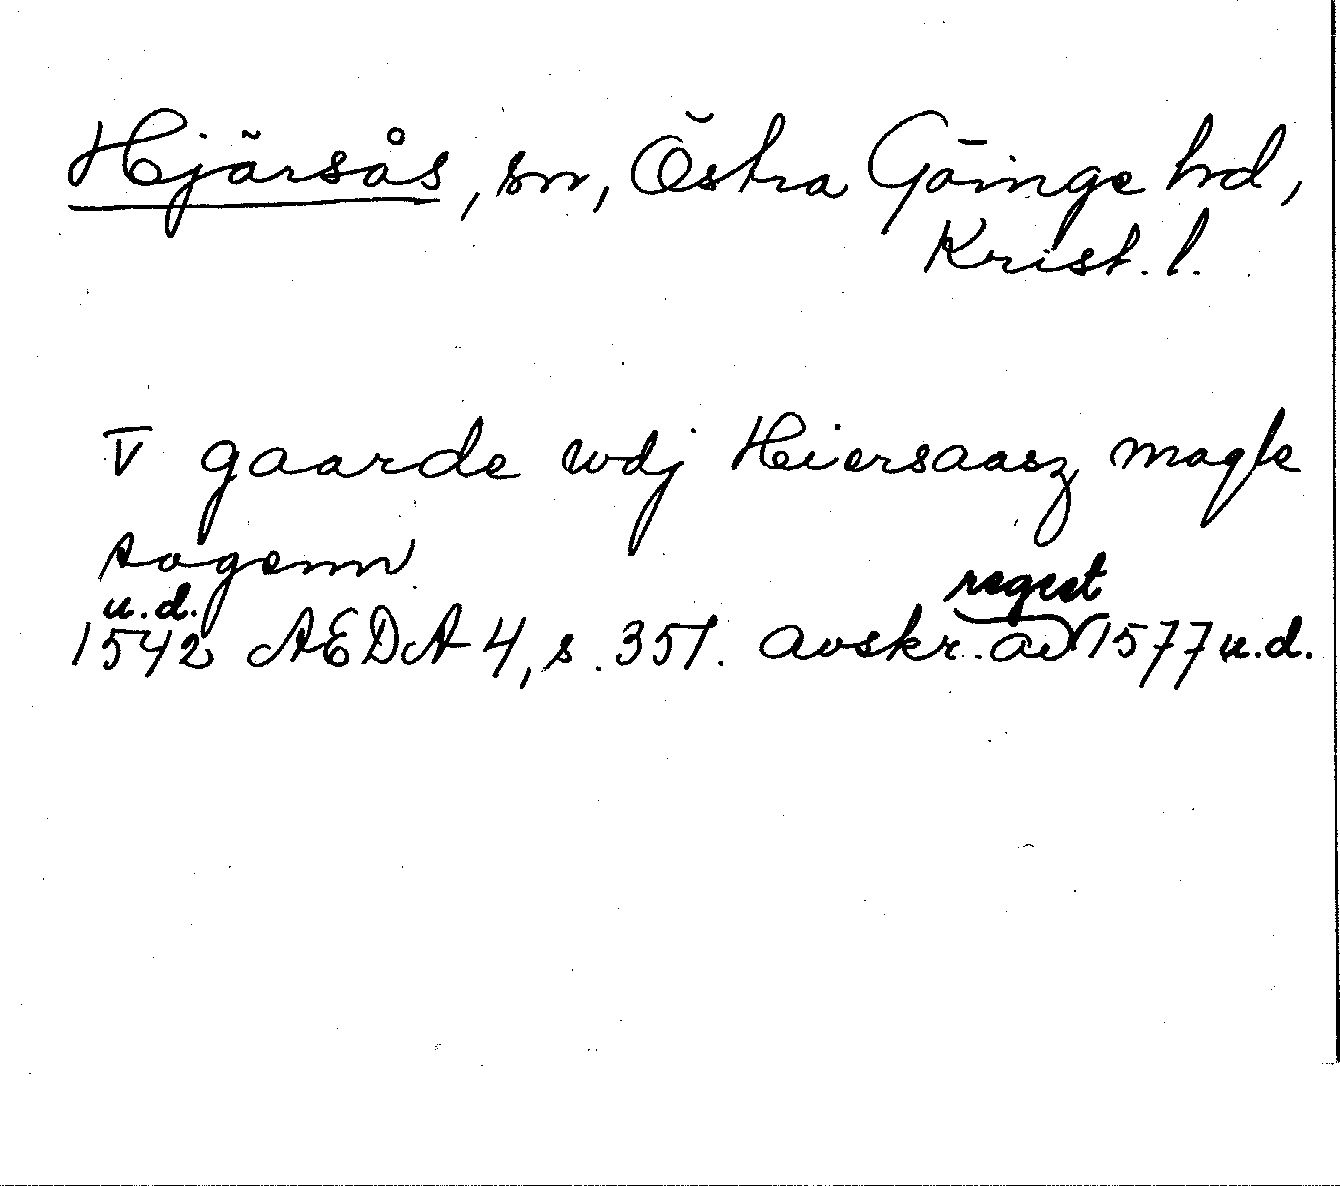 Hjärsås, sn, Östra Göinge hd,
Krist. l.
V gaarde wdj Heiersaasz magle
sogenn
u.d. regest
1542 AEDA 4, s. 351. avskr. av 1577 u.d.